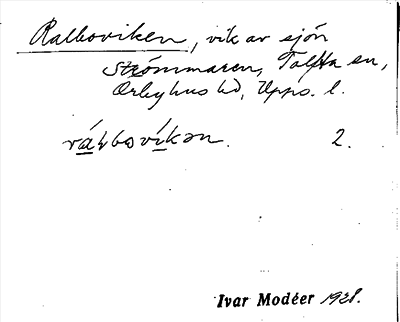 Ralboviken, vik av sjön
Strömmaren, Tolfta sn,
Örbyhus hd, Upps. l.
rálbovíkən. 2.
Ivar Modéer 1928.